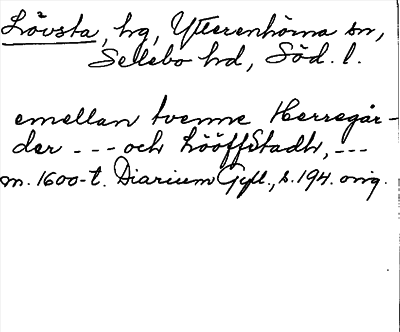 Lövsta, hg, Ytterenhörna sn,
Selebo hd, Söd. l.
emellan tvenne Herregår-
der --- och Lööffstadh, ---
m. 1600-t. Diarium Gyll., s. 194. orig.